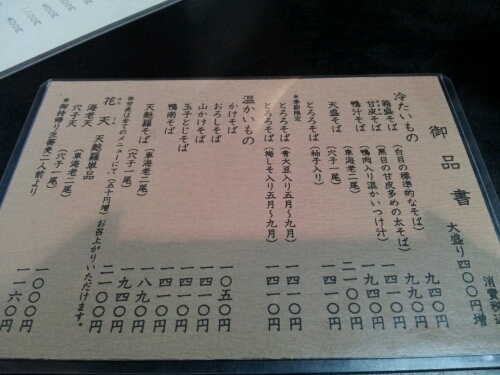 御品書
大盛り四〇〇円増
消費税込
冷たいもの
箱盛そば（白目の標準的なそば）
甘皮そば（黒目の甘皮多めの太そば）
鴨汁そば（鴨肉入り温かいつけ汁）
天盛そば（車海老二尾）
（穴子一尾）
とろろそば（柚子入り）
＊季節限定
とろろそば（青大豆入り五月～九月）
とろろそば（梅しそ入り五月～九月）
九四〇円
九九〇円
一四一〇円
一九四〇円
二一〇〇円
一四一〇円
一四一〇円
温かいもの
かけそば
おろしそば
山かけそば
玉子とじそば
鴨南そば
天麩羅そば（車海老二尾）
（穴子一尾）
※甘皮は全てのメニューにて（五十円増）お召上がりいただけます。
一〇五〇円
一四一〇円
一四一〇円
一四一〇円
一八九〇円
一九四〇円
二一〇〇円
花天 天麩羅単品
海老天（車海老二尾）
穴子天（穴子一尾）
＊御持帰り生蕎麦二人前より
一〇〇〇円
一一六〇円